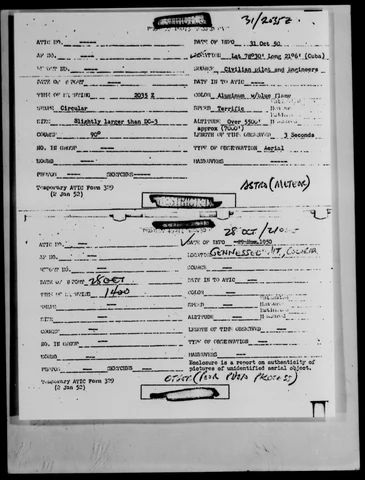 31/2035Z
ATIC NO. DATE OF INFO 31 Oct 50
AF NO. LOCATION Lat 78°30' Long 21°6' (Cuba)
REPORT NO. SOURCE Civilian pilot and engineers
DATE OF REPORT DATE IN TO ATIC
TIME OF SIGHTING 2035 Z COLOR Aluminum w/blue flame
SHAPE Circular SPEED Terrific
SIZE Slightly larger than DC-3 ALTITUDE Over 5500'
approx (7000')
COURSE 90° LENGTH OF TIME OBSERVED 3 Seconds
NO. IN GROUP TYPE OF OBSERVATION Aerial
SOUND MANEUVERS
PHOTOS SKETCHES
Temporary ATIC Form 329 ASTRO (METEOR)
(2 Jan 52)
28 OCT /
ATIC NO. DATE OF INFO 1950
AF NO. LOCATION
REPORT NO. SOURCE
DATE OF REPORT 28 OCT DATE IN TO ATIC
TIME OF SIGHTING 1400 COLOR
SHAPE SPEED
SIZE ALTITUDE
COURSE LENGTH OF TIME OBSERVED
NO. IN GROUP TYPE OF OBSERVATION
SOUND MANEUVERS
PHOTOS SKETCHES Enclosure is a report on authenticity of
pictures of unidentified aerial object.
Temporary ATIC Form 329
(2 Jan 52) OTHER (POOR PHOTO PROCESS)